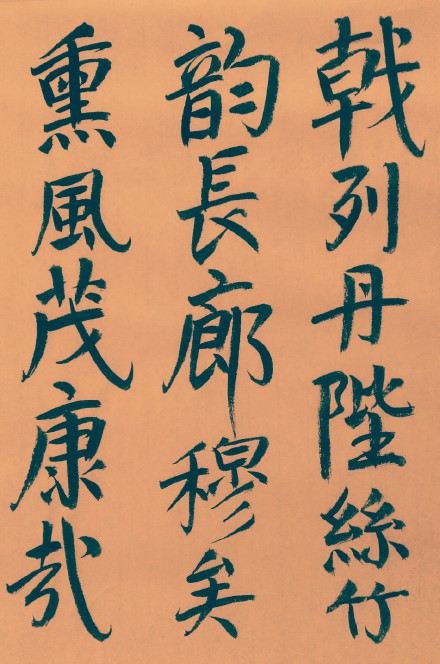 戟列丹陛絲竹
韵長廊穆矣
熏風茂康哉